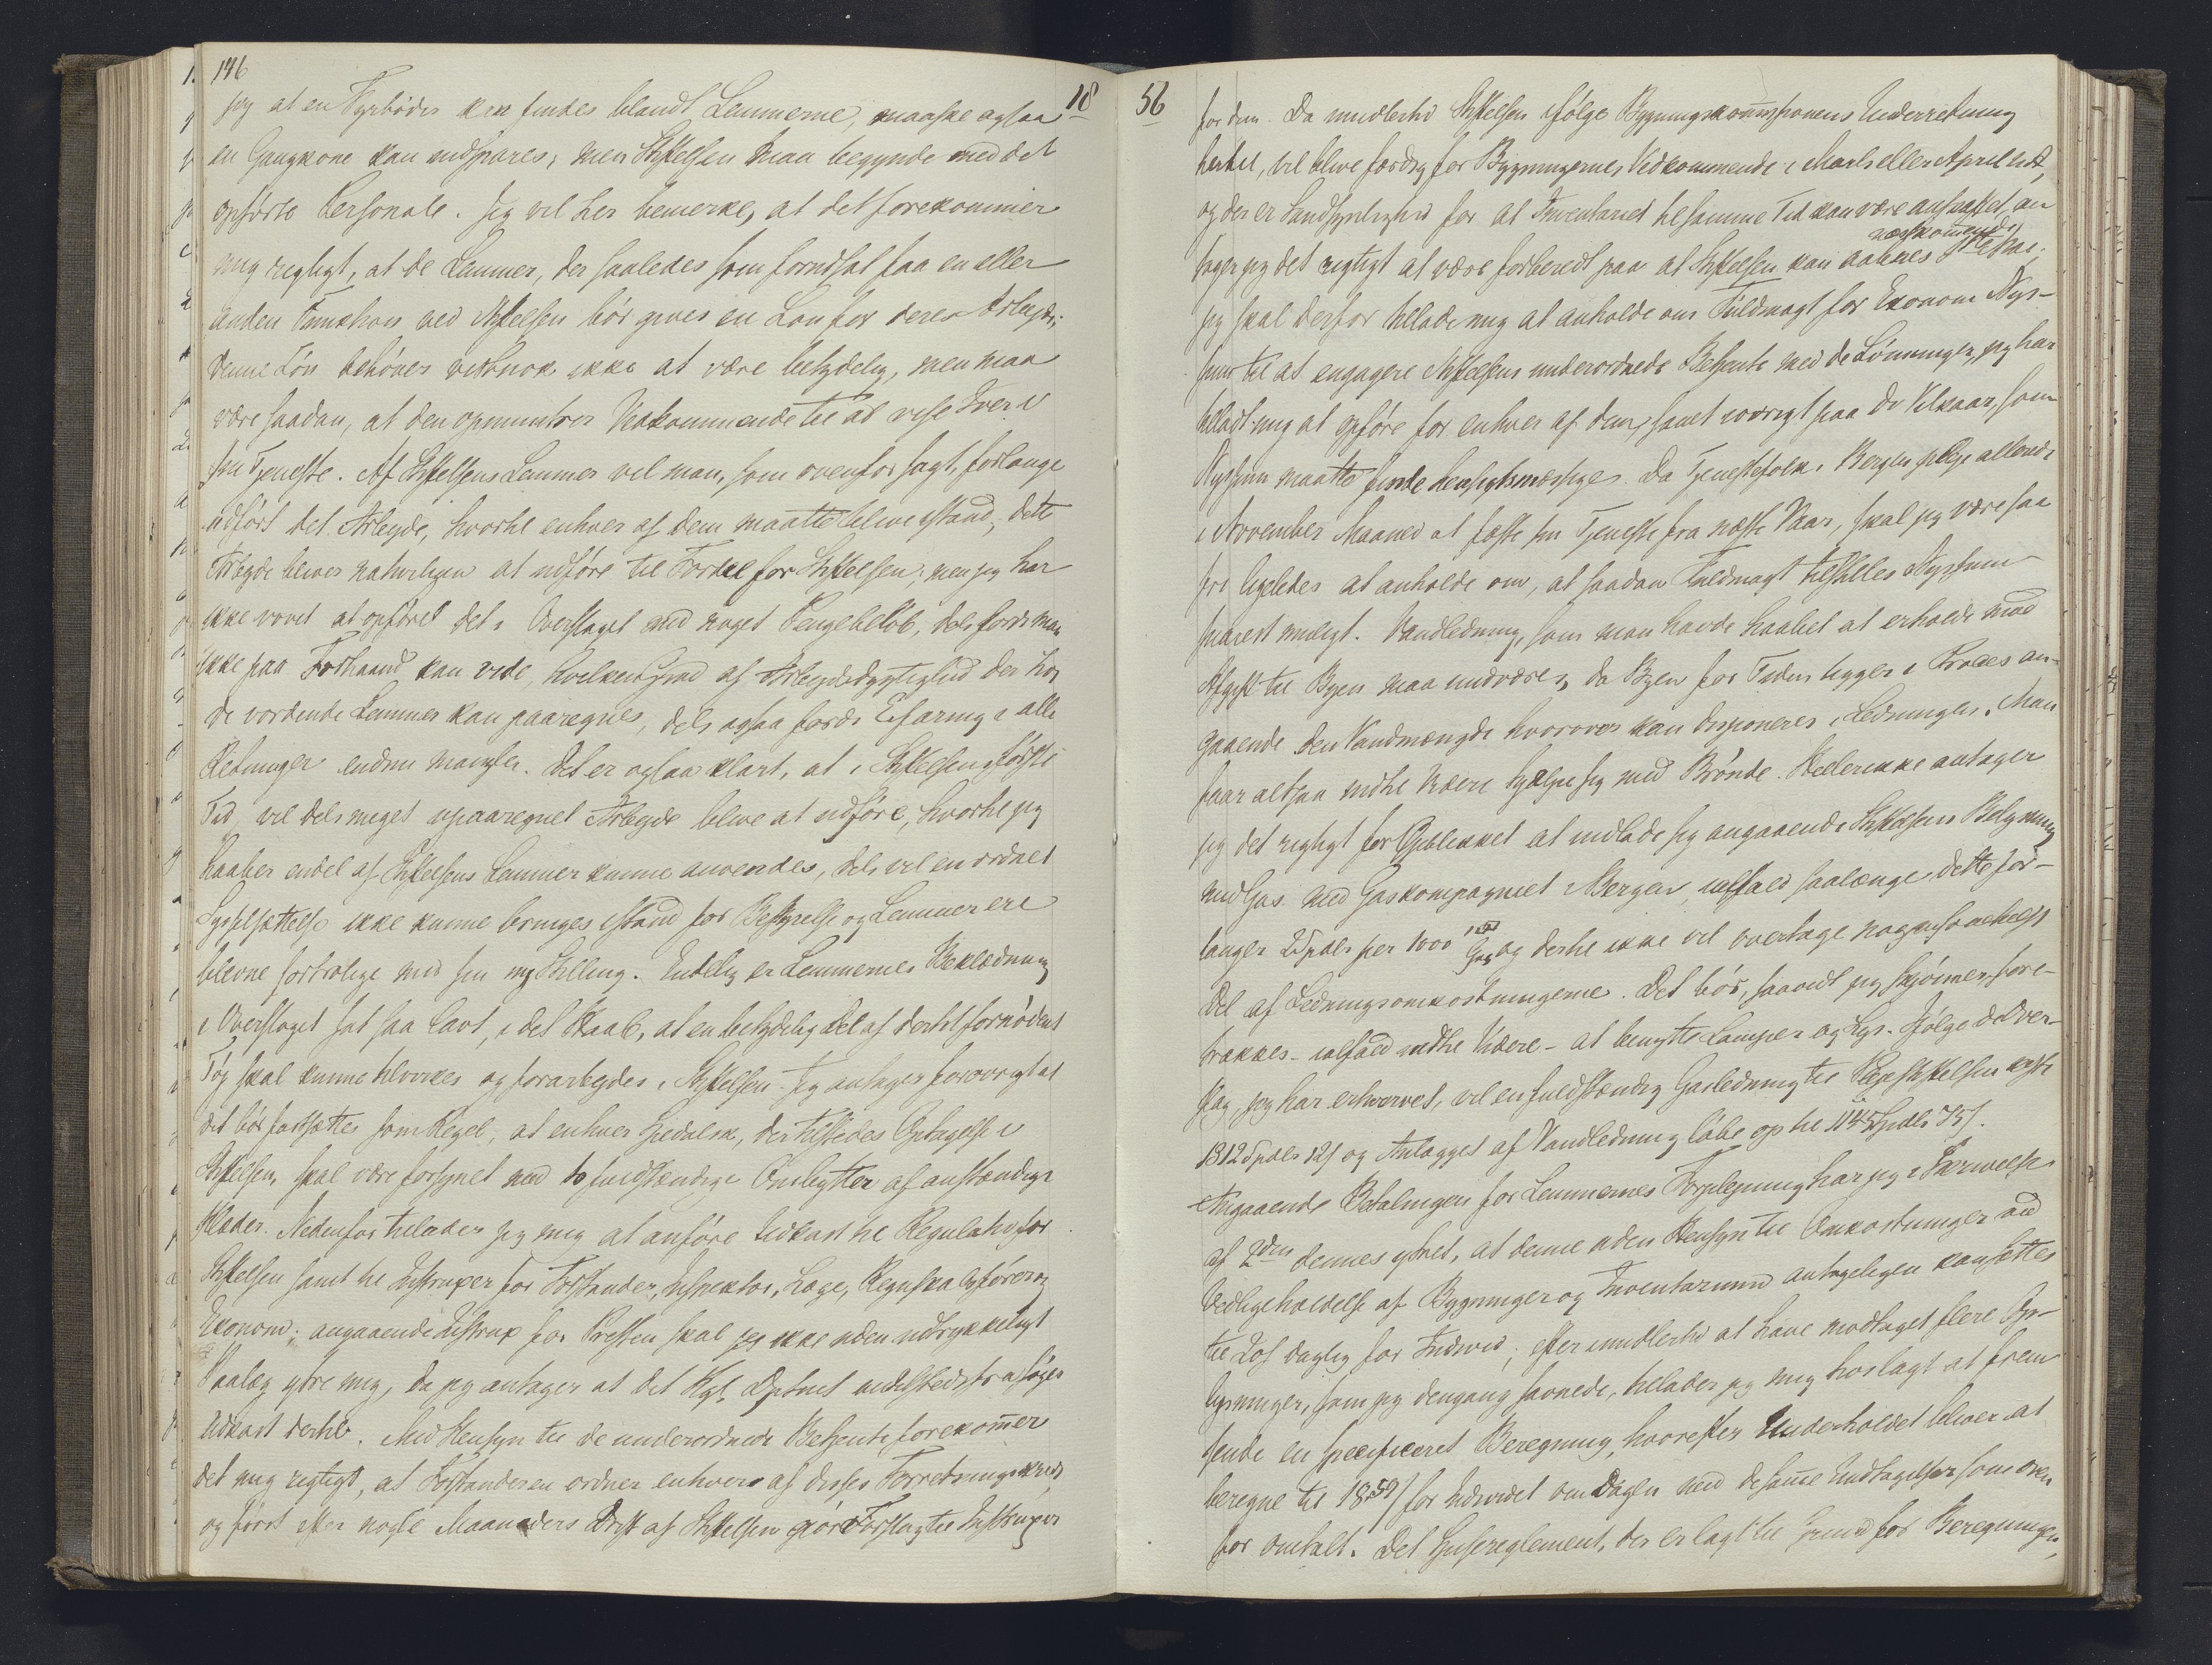 146
18
jeg at en Fyrbøder kan findes blandt Lemmerne, maaske ogsaa
en Gangkone kan indspares; men Stiftelsen maa begynde med det
opførte Personale. Jeg vil her bemerke, at det forekommer
mig rigtigt, at de Lemmer, der saaledes som forudsat faa en eller
anden Funktion ved Stiftelsen bør gives en Løn for deres Arbeyde;
denne Løn behøver vistnok ikke at være betydelig, men maa
være saadan, at den opmuntrer Vedkommende til at vise Iver i
sin Tjeneste. Af Stiftelsens Lemmer vil man, som ovenfor sagt, forlange
udført det Arbeyde, hvortil enhver af dem maatte blive istand; dette
Arbeyde bliver naturligen at udføre til Fordel for Stiftelsen; men jeg har
ikke vovet at opføret det i Overslaget med noget Pengebeløb, dels fordi man
ikke paa Forhaand kan vide, hvilken Grad af Arbeydsdygtighed der hos
de vordende Lemmer kan paaregnes, dels ogsaa fordi Erfaring i alle
Retninger endnu mangler. Det er ogsaa klart, at i Stiftelsens første
Tid, vil dels meget upaaregnet Arbeyde blive at udføre, hvortil jeg
haaber endel af Stiftelsens Lemmer kunne anvendes, dels vil en ordnet
Sysselsættelse ikke kunne bringes istand før Bestyrelse og Lemmer ere
blevne fortrolige med sin ny Stilling. Endelig er Lemmernes Beklædning
i Overslaget sat saa lavt, i det Haab, at en betydelig Del af dertil fornødent
Tøy skal kunne tilvirkes og forarbeydes i Stiftelsen. Jeg antager forøvrigt at
det bør fastsættes som Regel, at enhver Spedalsk, der tilstedes Optagelse i
Stiftelsen, skal være forsynet med to fuldstændige Ombytter af anstændige
Klæder. Nedenfor tillader jeg mig at anføre Udkast til Regulativ for
Stiftelsen samt til Instruxer for Forstander, Inspektør, Læge, Regnskabsfører og
Ekonom; angaaende Instrux for Presten skal jeg ikke uden udtrykkeligt
Paalæg ytre mig, da jeg antager at det Kgl. Dptmt andetstedsfra søger
Udkast dertil. Med Hensyn til de underordnede Betjente forekom̅er
det mig rigtigt, at Forstanderen ordner enhver af disses Forretningskreds
og først efter nogle Maaneders Drift af Stiftelsen gør Forslag til Instruxer
56
for dem. Da imidlertid Stiftelsen ifølge Bygningskom̅issionens Underretning
hertil, vil blive færdig for Bygningernes Vedkommende i Marts eller April næst,
og der er Sandsynlighed for at Inventariet til samme Tid kan være anskaffet, an
næstkom̅ende
søger jeg det rigtigt at være forberedt paa at Stiftelsen kan aabnes 1ste Mai;
jeg skal derfor tillade mig at anholde om Fuldmagt for Ekonom Nys-
sum til at engagere Stiftelsens underordnede Betjente med de Lønninger, jeg har
tilladt mig at opføre for enhver af dem, samt iøvrigt paa de Vilkaar, som
Nyssum maatte finde hensigtsmæssige. Da Tjenestefolk i Bergen pleje allerede
i November Maaned at fæste sin Tjeneste fra næste Vaar, skal jeg være saa
fri ligeledes at anholde om, at saadan Fuldmagt tilstilles Nyssum
snarest muligt. Vandledning, som man havde haabet at erholde mod
Afgift til Byen maa undværes, da Byen for Tiden ligger i Proces an-
gaaende den Vandmængde hvorover kan disponeres i Ledningen. Man
faar altsaa indtil videre hjælpe sig med Brønde. Hellerikke antager
jeg det rigtigt for Øieblikket at indlade sig angaaende Stiftelsens Belysning
med Gas med Gaskompagniet i Bergen, ialfald saalænge dette for-
langer 2 Spdlr per 1000 Gas og dertil ikke vil overtage nogensomhelst
Del af Ledningsomkostningerne. Det bør, saavidt jeg skjønner, fore-
trækkes – ialfald indtil videre – at benytte Lamper og Lys. Ifølge de Over-
slag, jeg har erhvervet, vil en fuldstændig Gasledning til Pleiestiftelsen koste
1312 Spdlr 12 s og Anlægget af Vandledning løbe op til 1145 Spdlr 75 s.
Angaaende Betalingen for Lemmernes Forplejning har jeg i Skrivelse
af 2den dennes ytret, at denne uden Hensyn til Omkostninger ved
Vedligeholdelse af Bygninger og Inventarium antageligen kan sættes
til 20 s daglig for Individ; efter imidlertid at have modtaget flere Op-
lysninger, som jeg dengang savnede, tillader jeg mig hoslagt at frem-
sende en specificeret Beregning, hvorefter Underholdet bliver at
beregne til 18,59 s for Individet om Dagen med de sam̅e Undtagelser som oven
for omtalt. Det Spisereglement, der er lagt til Grund for Beregningen,